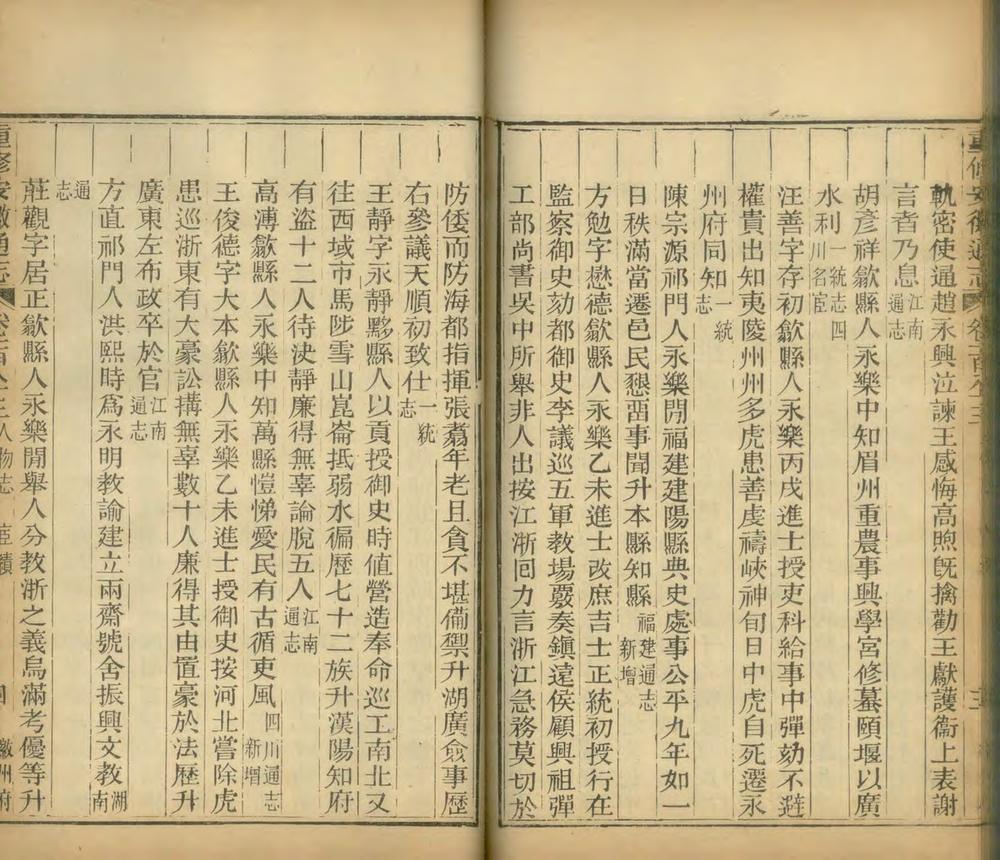 重修安徽通志 卷一百八十三
軌密使逼趙永興泣諫王感悔高煦既擒勸王獻護衞上表謝
言者乃息江南通志
胡彥祥歙縣人永樂中知眉州重農事興學宮修蟇頤堰以廣
水利一統志四川名宦
汪善字存初歙縣人永樂丙戌進士授吏科給事中彈劾不避
權貴出知夷陵州州多虎患善虔禱峽神旬日中虎自死遷永
州府同知一統志
陳宗源祁門人永樂閒福建建陽縣典史處事公平九年如一
日秩滿當遷邑民懇畱事聞升本縣知縣福建通志新增
方勉字懋德歙縣人永樂乙未進士改庶吉士正統初授行在
監察御史劾都御史李議巡五軍教場覈奏鎮遠侯顧興祖彈
工部尚書吳中所舉非人出按江浙囘力言浙江急務莫切於
防倭而防海都指揮張翥年老且貪不堪備禦升湖廣僉事歷
右參議天順初致仕一統志
王靜字永靜黟縣人以貢授御史時值營造奉命巡工南北又
往西域市馬陟雪山崑崙抵弱水徧歷七十二族升漢陽知府
有盜十二人待決靜廉得無辜論脫五人江南通志
高溥歙縣人永樂中知萬縣愷悌愛民有古循吏風四川通志新增
王俊德字大本歙縣人永樂乙未進士授御史按河北嘗除虎
患巡浙東有大豪訟搆無辜數十人廉得其由置豪於法歷升
廣東左布政卒於官江南通志
方直祁門人洪熙時爲永明教諭建立兩齋號舍振興文教湖南
通志
莊觀字居正歙縣人永樂閒舉人分教浙之義烏滿考優等升
重修安徽通志 人物志 宦績 四 徽州府